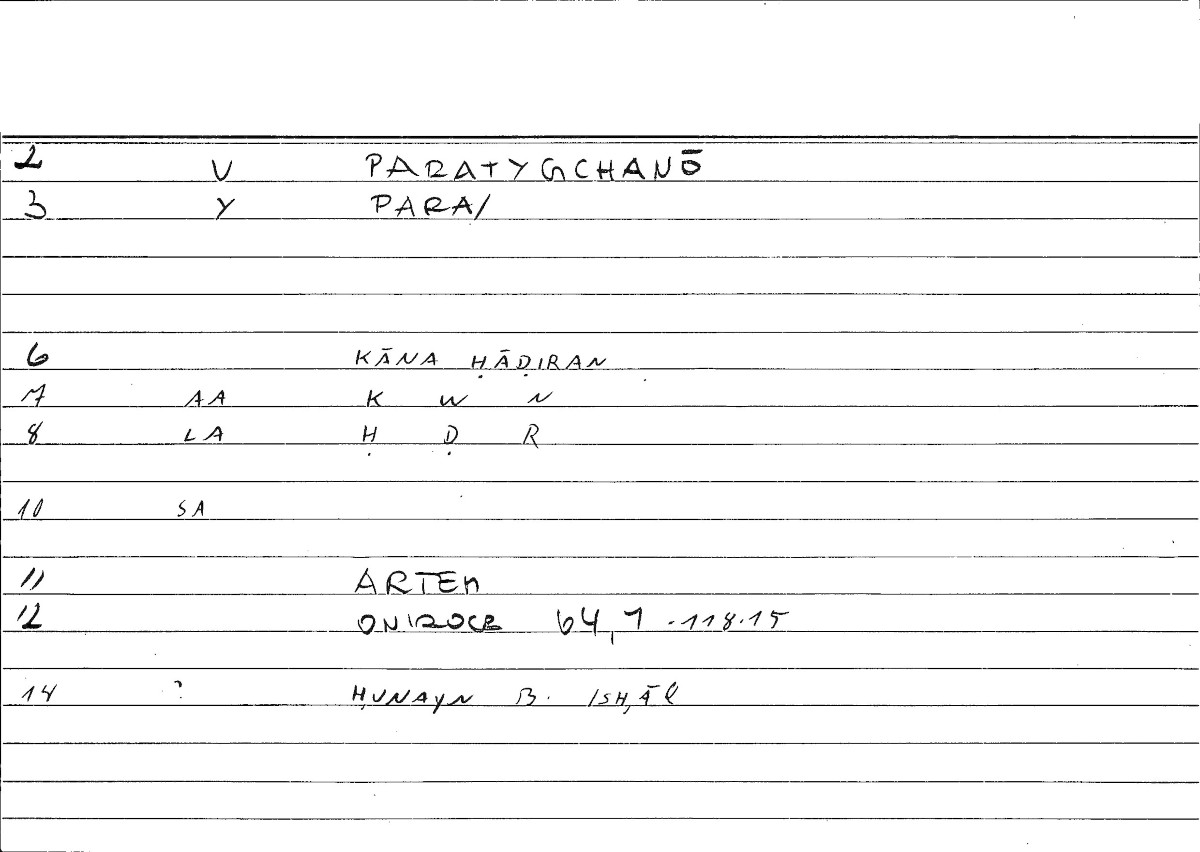 2 V PARATYGCHANŌ
3 Y PARA/
6 KĀNA ḤĀḌIRAN
7 AA K W N
8 LA Ḥ Ḍ R
10 SA
11 ARTEM
12 ONIROCR 64,1 - 118.15
14 ? ḤUNAYN B. ISḤĀQ